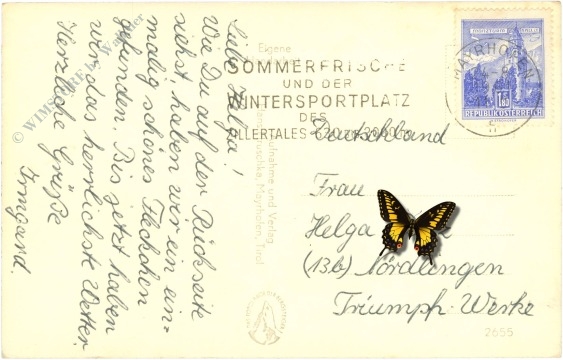 Liebe Helga!
Wie Du auf der Rückseite
siehst, haben wir ein ein-
malig schönes Fleckchen
gefunden. Bis jetzt haben
wir das herrlichste Wetter.
Herzliche Grüße
Irmgard.
Eigene
Aufnahme und Verlag
Mayrhofen, Tirol
SOMMERFRISCHE
UND DER
WINTERSPORTPLATZ
DES
ZILLERTALES 630 m-3000 m
MAYRHOFEN
1.80
REPUBLIK ÖSTERREICH
Deutschland
Frau
Helga
(13b) Nördlingen
Triumph-Werke
2655
© WIMSCHREA